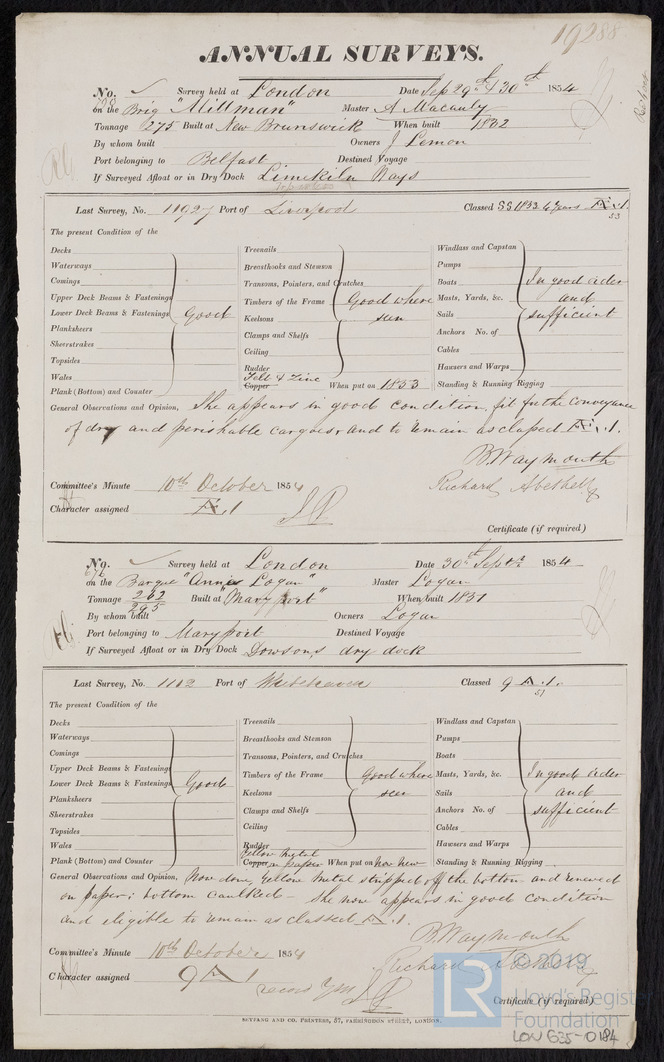 19288
ANNUAL SURVEYS.
No. Survey held at London Date Sep 29th & 30th 1854
on the Brig "Millman" Master A Macauly
Tonnage 275 Built at New Brunswick When built 1832
By whom built Owners J Lemon
Port belonging to Belfast Destined Voyage
If Surveyed Afloat or in Dry Dock Limekiln Ways
Last Survey, No. 11927 Port of Liverpool Classed SS 1833 6 Years Æ.1.
53
The present Condition of the
Decks Treenails Windlass and Capstan
Waterways Breasthooks and Stemson Pumps
Comings Transoms, Pointers, and Crutches Boats In good order
Upper Deck Beams & Fastenings Timbers of the Frame Good where Masts, Yards, &c. and
Lower Deck Beams & Fastenings Good Keelsons seen Sails sufficient
Planksheers Clamps and Shelfs Anchors No. of
Sheerstrakes Ceiling Cables
Topsides Rudder Hawsers and Warps
Wales Felt & Zinc
Plank (Bottom) and Counter Copper When put on 1853 Standing & Running Rigging
General Observations and Opinion, She appears in good condition, fit for the conveyance
of dry and perishable cargoes and to remain as classed Æ.1.
B. Waymouth
Richard Abethell
Committee's Minute 10th October 1854
Character assigned Æ 1
Certificate (if required)
No. Survey held at London Date 30th Septr 1854
on the Barque "Annie Logan" Master Logan
Tonnage 262 Built at "Maryport" When built 1851
295
By whom built Owners Logan
Port belonging to Maryport Destined Voyage
If Surveyed Afloat or in Dry Dock Dowsons dry dock
Last Survey, No. 1102 Port of Whitehaven Classed 9 A.1.
The present Condition of the
Decks Treenails Windlass and Capstan
Waterways Breasthooks and Stemson Pumps
Comings Transoms, Pointers, and Crutches Boats
Upper Deck Beams & Fastenings Timbers of the Frame Good where Masts, Yards, &c. In good order
Lower Deck Beams & Fastenings Good Keelsons seen Sails and
Planksheers Clamps and Shelfs Anchors No. of sufficient
Sheerstrakes Ceiling Cables
Topsides
Wales Rudder Hawsers and Warps
Yellow Metal
Plank (Bottom) and Counter Copper on paper When put on Now New Standing & Running Rigging
General Observations and Opinion, Now done, Yellow Metal stripped off the bottom and renewed
on paper; bottom caulked - She now appears in good condition
and eligible to remain as classed A.1.
B. Waymouth
Richard Abethell
Committee's Minute 10th October 1854
Character assigned 9 A 1
Certificate (if required)
SEYFANG AND CO. PRINTERS, 57, FARRINGDON STREET, LONDON.
LR © 2019
Lloyd's Register
Foundation
LON 635-0184